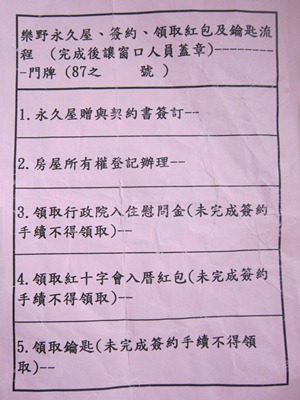 樂野永久屋、簽約、領取紅包及鑰匙流
程 (完成後讓窗口人員蓋章)--------
-門牌 (87之 號 )
1.永久屋贈與契約書簽訂--
2.房屋所有權登記辦理--
3.領取行政院入住慰問金(未完成簽約
手續不得領取)--
4.領取紅十字會入厝紅包(未完成簽約
手續不得領取)--
5.領取鑰匙(未完成簽約手續不得領
取)--